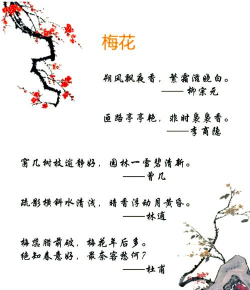 梅花
朔风飘夜香，繁霜滋晓白。
——柳宗元
匝路亭亭艳，非时裛裛香。
——李商隐
窗几数枝逾静好，园林一雪碧清新。
——曾几
疏影横斜水清浅，暗香浮动月黄昏。
——林逋
梅蕊腊前破，梅花年后多。
绝知春意好，最奈客愁何？
——杜甫